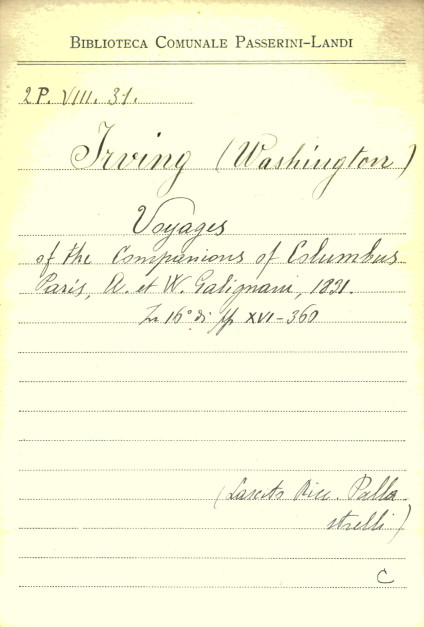 BIBLIOTECA COMUNALE PASSERINI-LANDI
2 P. VIII. 31.
Irving (Washington)
Voyages
of the Companions of Columbus
Paris, A. et W. Galignani, 1831.
In 16° di pp XVI-360
(Lascito Ricc. Palla
strelli)
C